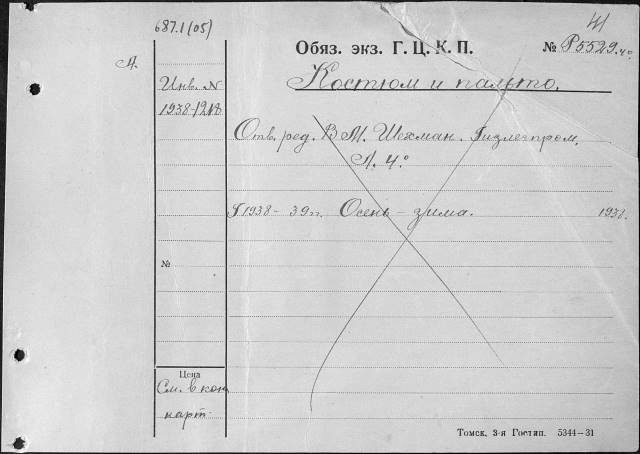 687.1(05)
Обяз. экз. Г. Ц. К. П.
№ Р5529.4°
Л.
Инв. N
1938-1218
Костюм и пальто.
Отв. ред. В М. Шехман. Гизлегпром.
Л. 4°
1938-39 гг. Осень - зима. 1938.
№
Цена
См. в кон.
карт.
Томск, 3-я Гостип. 5344—31